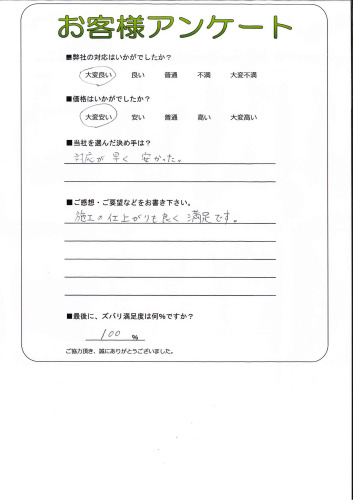 お客様アンケート
■弊社の対応はいかがでしたか？
大変良い 良い 普通 不満 大変不満
■価格はいかがでしたか？
大変安い 安い 普通 高い 大変高い
■当社を選んだ決め手は？
対応が早く 安かった。
■ご感想・ご要望などをお書き下さい。
施工の仕上がりも良く 満足です。
■最後に、ズバリ満足度は何%ですか？
100 %
ご協力頂き、誠にありがとうございました。